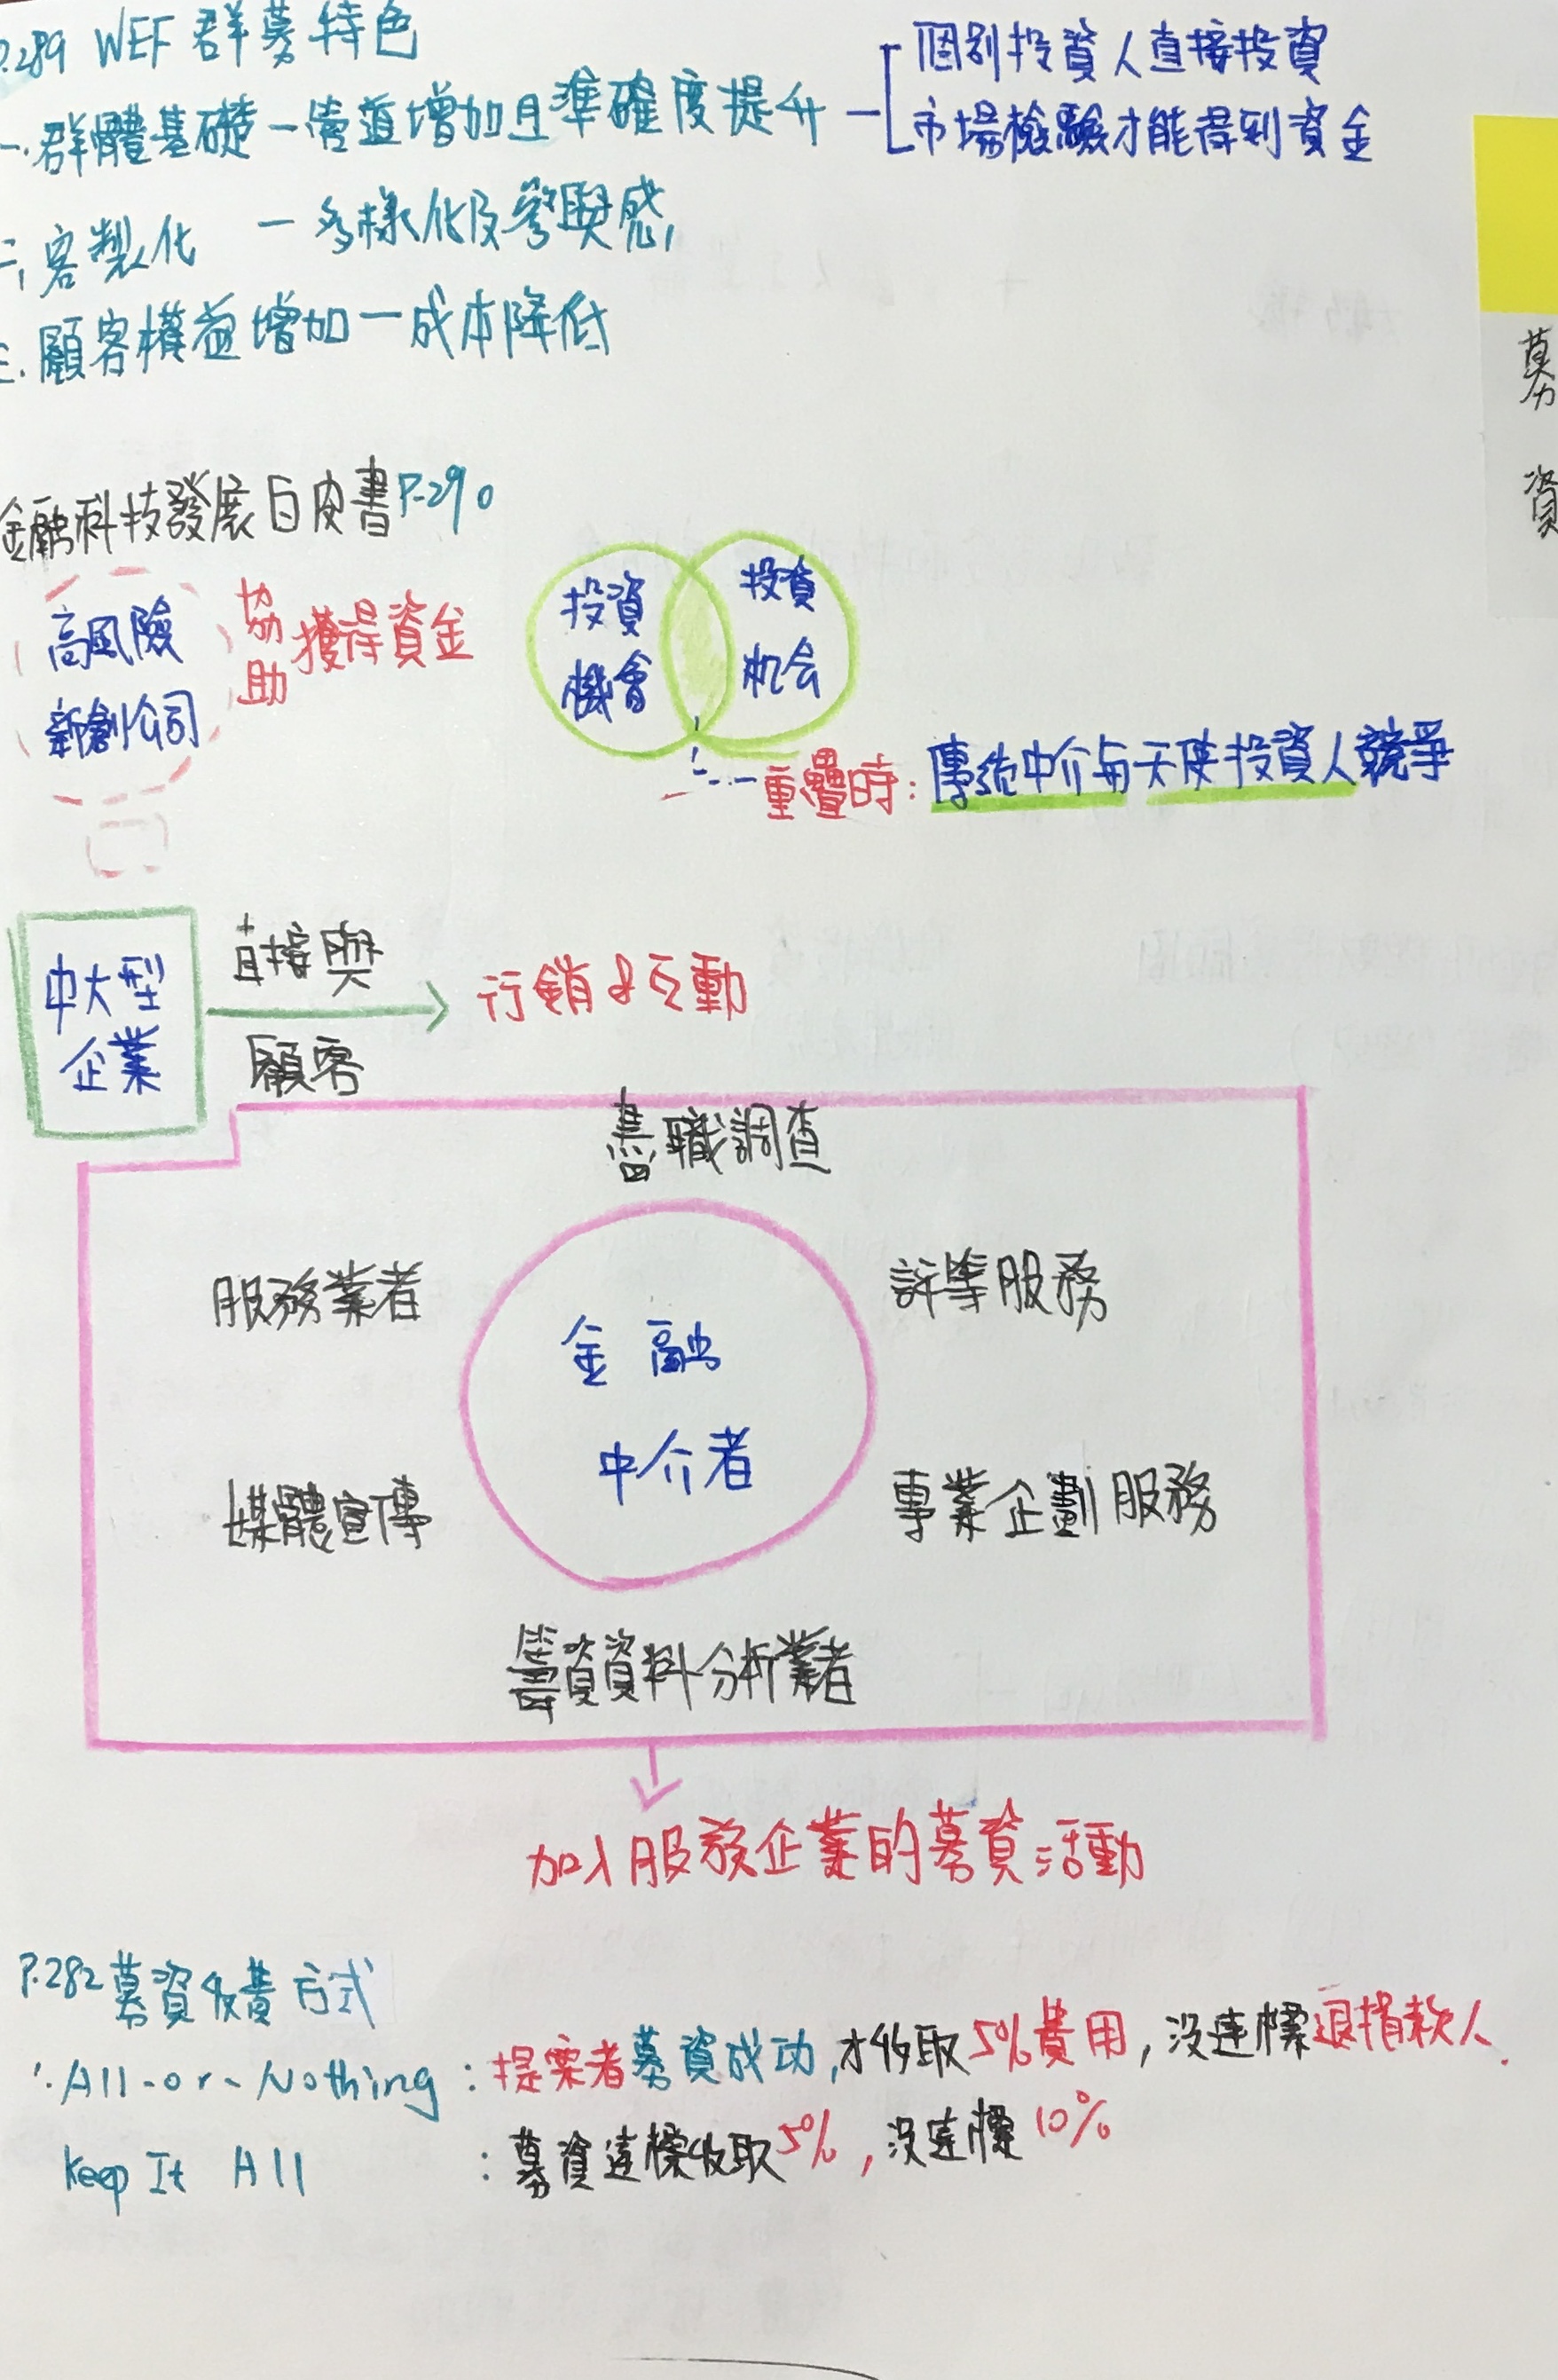 P.289 WEF 群募特色
一.群體基礎－管道增加且準確度提升
個別投資人直接投資
市場檢驗才能得到資金
二,客製化 － 多樣化及參與感,
三.顧客權益增加－成本降低
募資
金融科技發展白皮書P.290
高風險
新創公司
協助獲得資金
投資
機會
投資
机会
重疊時:傳統中介與天使投資人競爭
中大型
企業
直接與
顧客
行銷&互動
盡職調查
服務業者
評等服務
金融
中介者
媒體宣傳
專業企劃服務
籌資資料分析業者
加入服務企業的募資活動
P.282募資收費方式
All-or-Nothing :提案者募資成功,才收取5%費用,沒達標退捐款人.
Keep It All :募資達標收取5%,沒達標10%